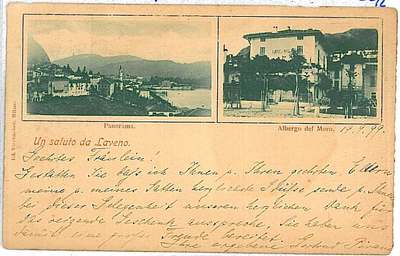 Panorama.
Albergo del Moro.
19.9.99.
Un saluto da Laveno.
Geehrtes Fräulein!
Gestatten Sie daß ich Ihnen u. Ihren geehrten Eltern
meine u. meines Gatten herzlichste Grüße sende u.
bei dieser Gelegenheit unseren herzlichen Dank für
das reizende Geschenk ausspreche, Sie haben uns
damit eine große Freude bereitet.
Ihre ergebene